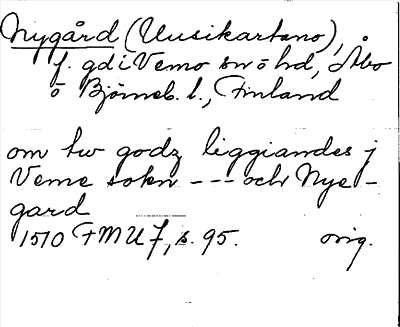 Nygård (Uusikartano),
f. gd i Vemo sn ö hd, Åbo
o Björneb. l., Finland
om tw godz liggiandes j
Veme sokn --- och Nye-
gard
1510 FMU 7, s. 95. orig.